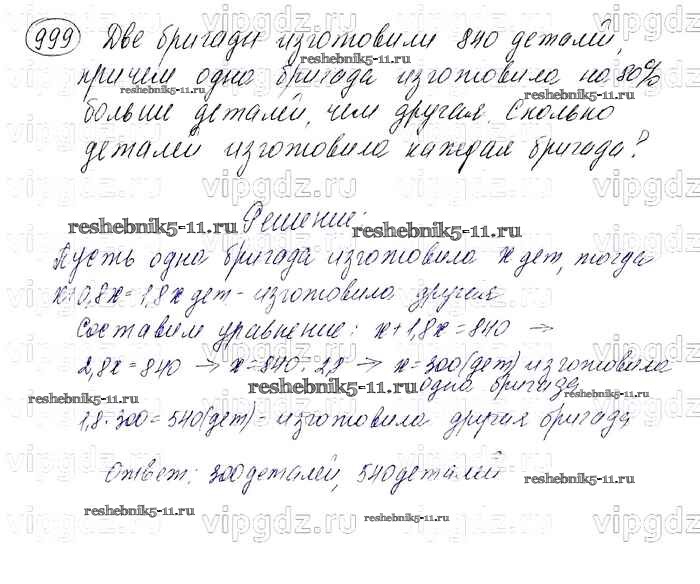 999 Две бригады изготовили 840 деталей,
причем одна бригада изготовила на 80%
больше деталей, чем другая. Сколько
деталей изготовила каждая бригада?
Решение:
Пусть одна бригада изготовила x дет, тогда
x+0,8x=1,8x дет - изготовила другая
Составим уравнение: x+1,8x=840 →
2,8x=840 → x=840:2,8 → x=300(дет) изготовила
одна бригада
1,8·300=540(дет)= изготовила другая бригада
Ответ: 300 деталей, 540 деталей
vipgdz.ru
reshebnik5-11.ru